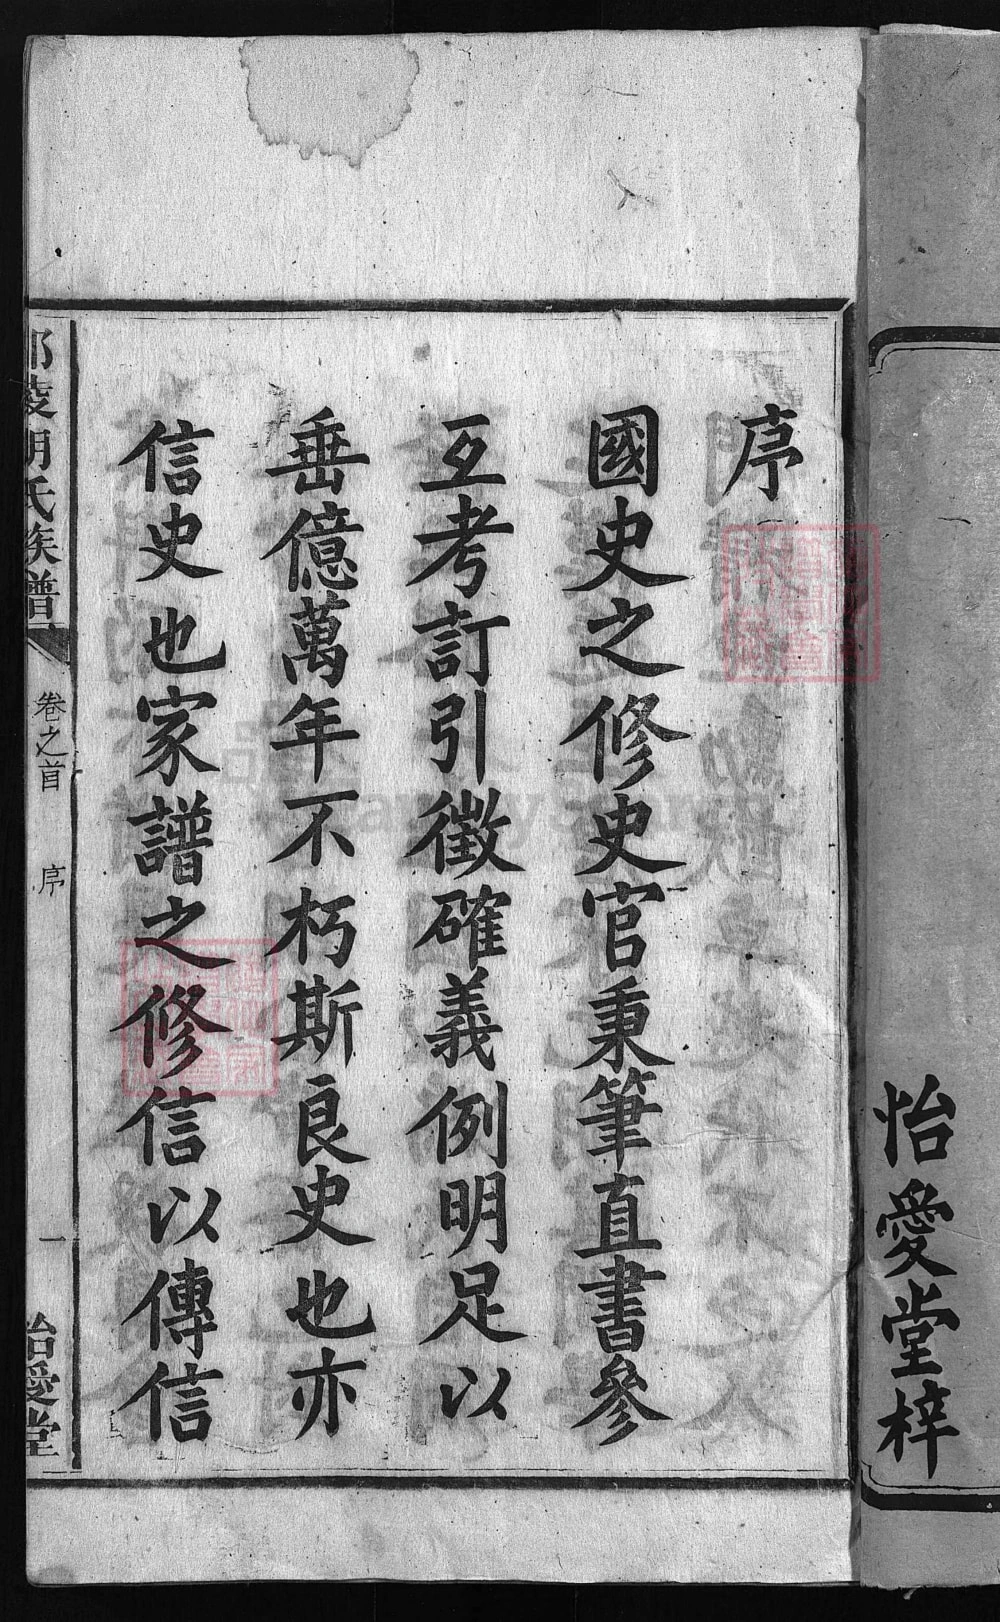 怡愛堂梓
序
國史之修史官秉筆直書參
互考訂引徵確義例明足以
垂億萬年不朽斯良史也亦
信史也家譜之修信以傳信
陵胡氏族譜
卷之首
序
一
怡愛堂